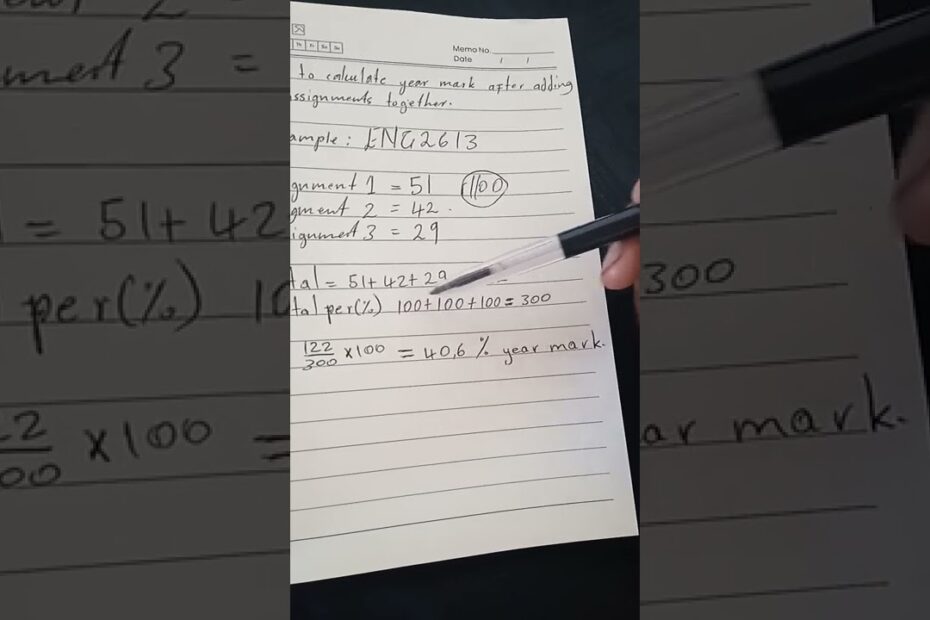 Memo No.
Date / /
Th Fr Sa Su
to calculate year mark after adding
ssignments together.
ample : ENG2613
gnment 1 = 51 /100
gment 2 = 42 .
ignment 3 = 29
tal = 51+42+29
tal per(%) 100+100+100 = 300
122/300 ×100 = 40,6 % year mark.
ment 3 =
= 51+42
per(%) 10
300
×100 =
ar mark.